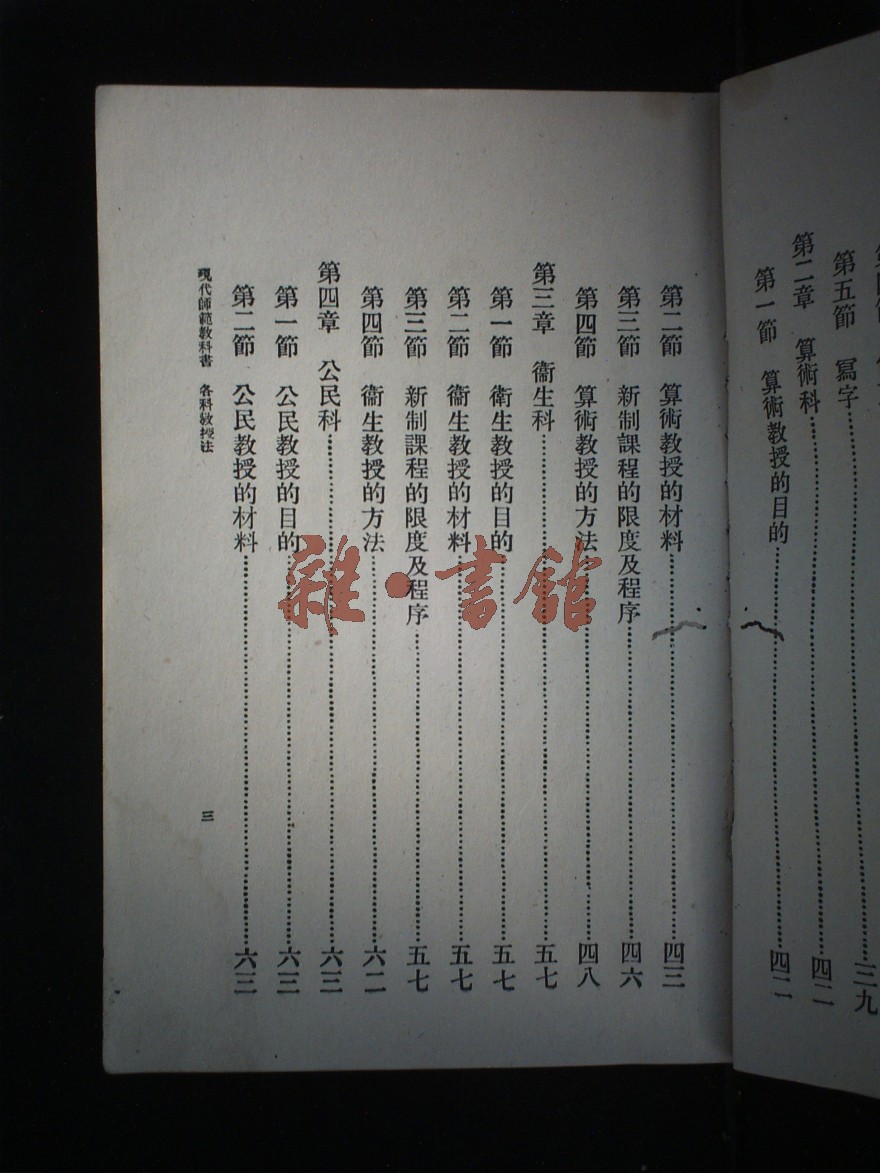 第五節　寫字……三九
第二章　算術科……四二
第一節　算術教授的目的……四二
第二節　算術教授的材料……四三
第三節　新制課程的限度及程序……四六
第四節　算術教授的方法……四八
第三章　衞生科……五七
第一節　衞生教授的目的……五七
第二節　衞生教授的材料……五七
第三節　新制課程的限度及程序……五七
第四節　衞生教授的方法……六二
第四章　公民科……六三
第一節　公民教授的目的……六三
第二節　公民教授的材料……六三
現代師範教科書　各科教授法
三
雜·書館